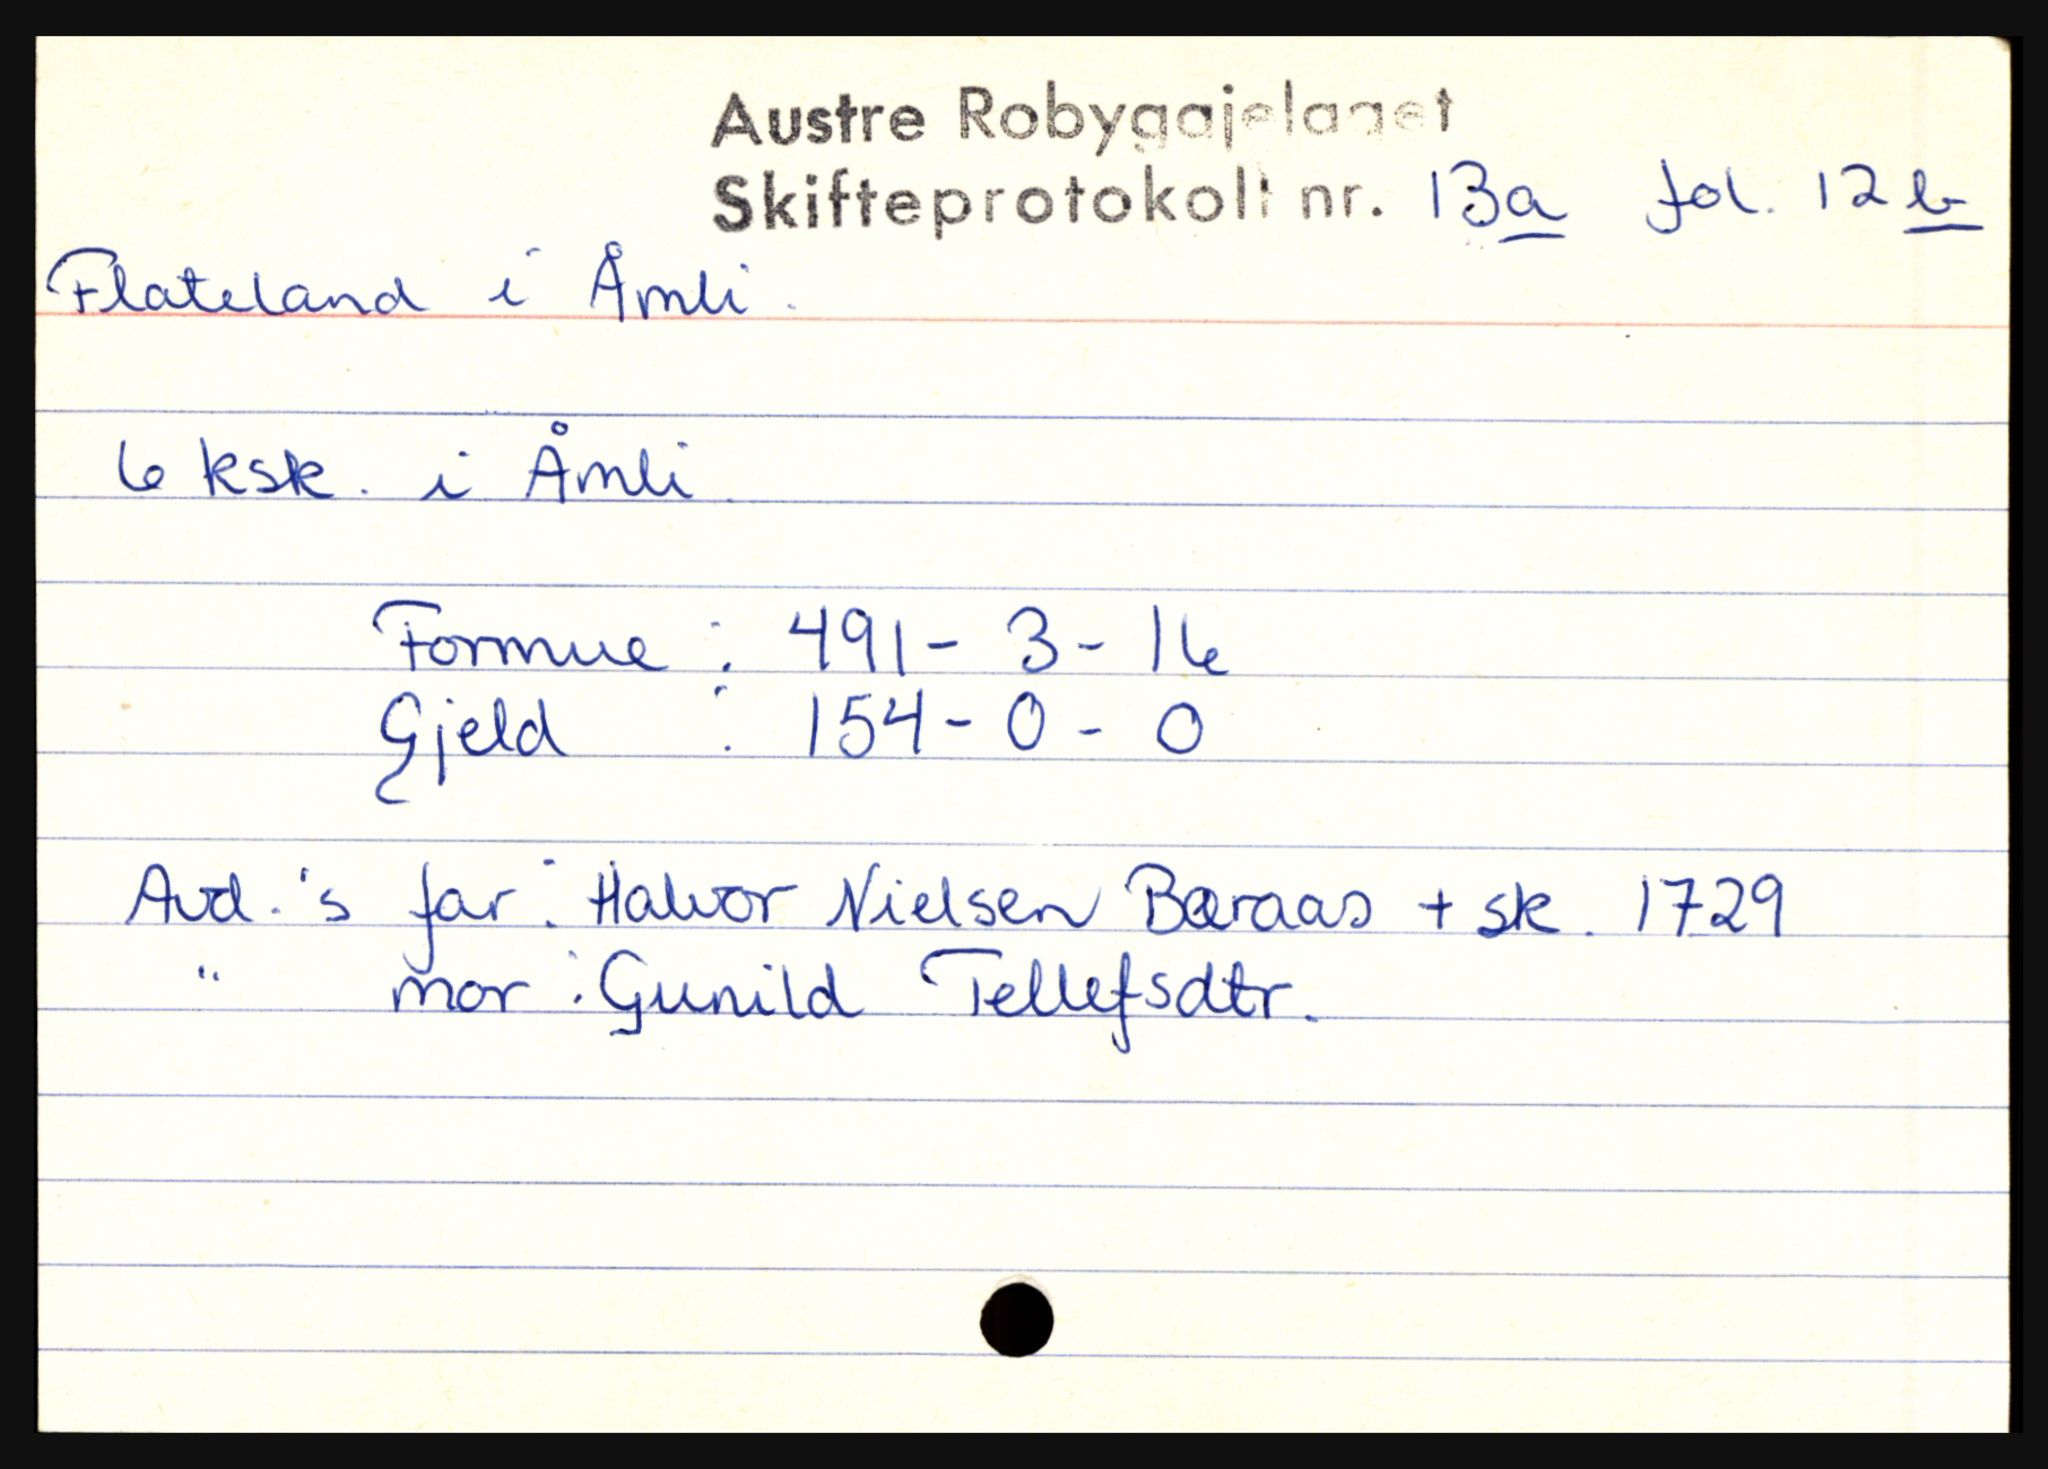 Austre Robygajelaget
Skifteprotokoll nr. 13a fol. 12b
Flateland i Åmli.
6 ksk. i Åmli.
Formue : 491 - 3 - 16
Gjeld : 154 - 0 - 0
Avd.'s far : Halvor Nielsen Bæraas + sk. 1729
" mor : Gunild Tellefsdtr.